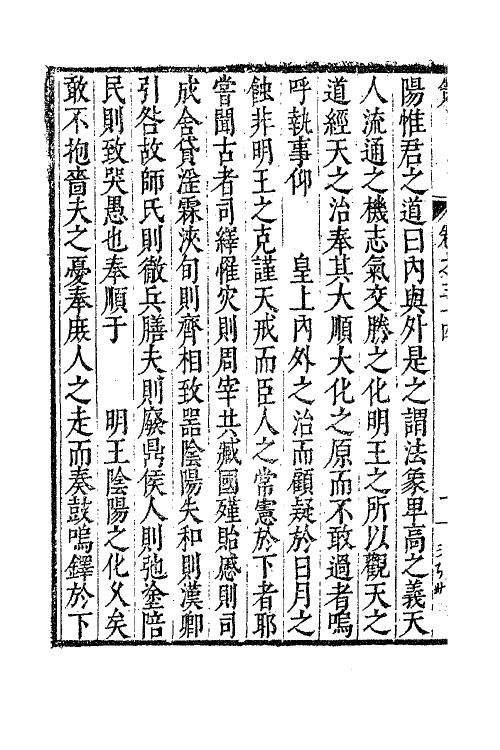 陽惟君之道曰內與外是之謂法象卑高之義天
人流通之機志氣交勝之化明王之所以觀天之
道經天之治奉其大順大化之原而不敢過者嗚
呼執事仰　　皇上內外之治而顧疑於日月之
蝕非明王之克謹天戒而臣人之常憲於下者耶
嘗聞古者司繹惟灾則周宰共臧國殣貽慼則司
成舍貸淫霖浹旬則齊相致噐陰陽失和則漢卿
引咎故師氏則徹兵膳夫則廢鼎侯人則弛塗陪
民則致哭愚也奉順于　　明王陰陽之化久矣
敢不抱嗇夫之憂奉庶人之走而奏鼓嗚鐸於下